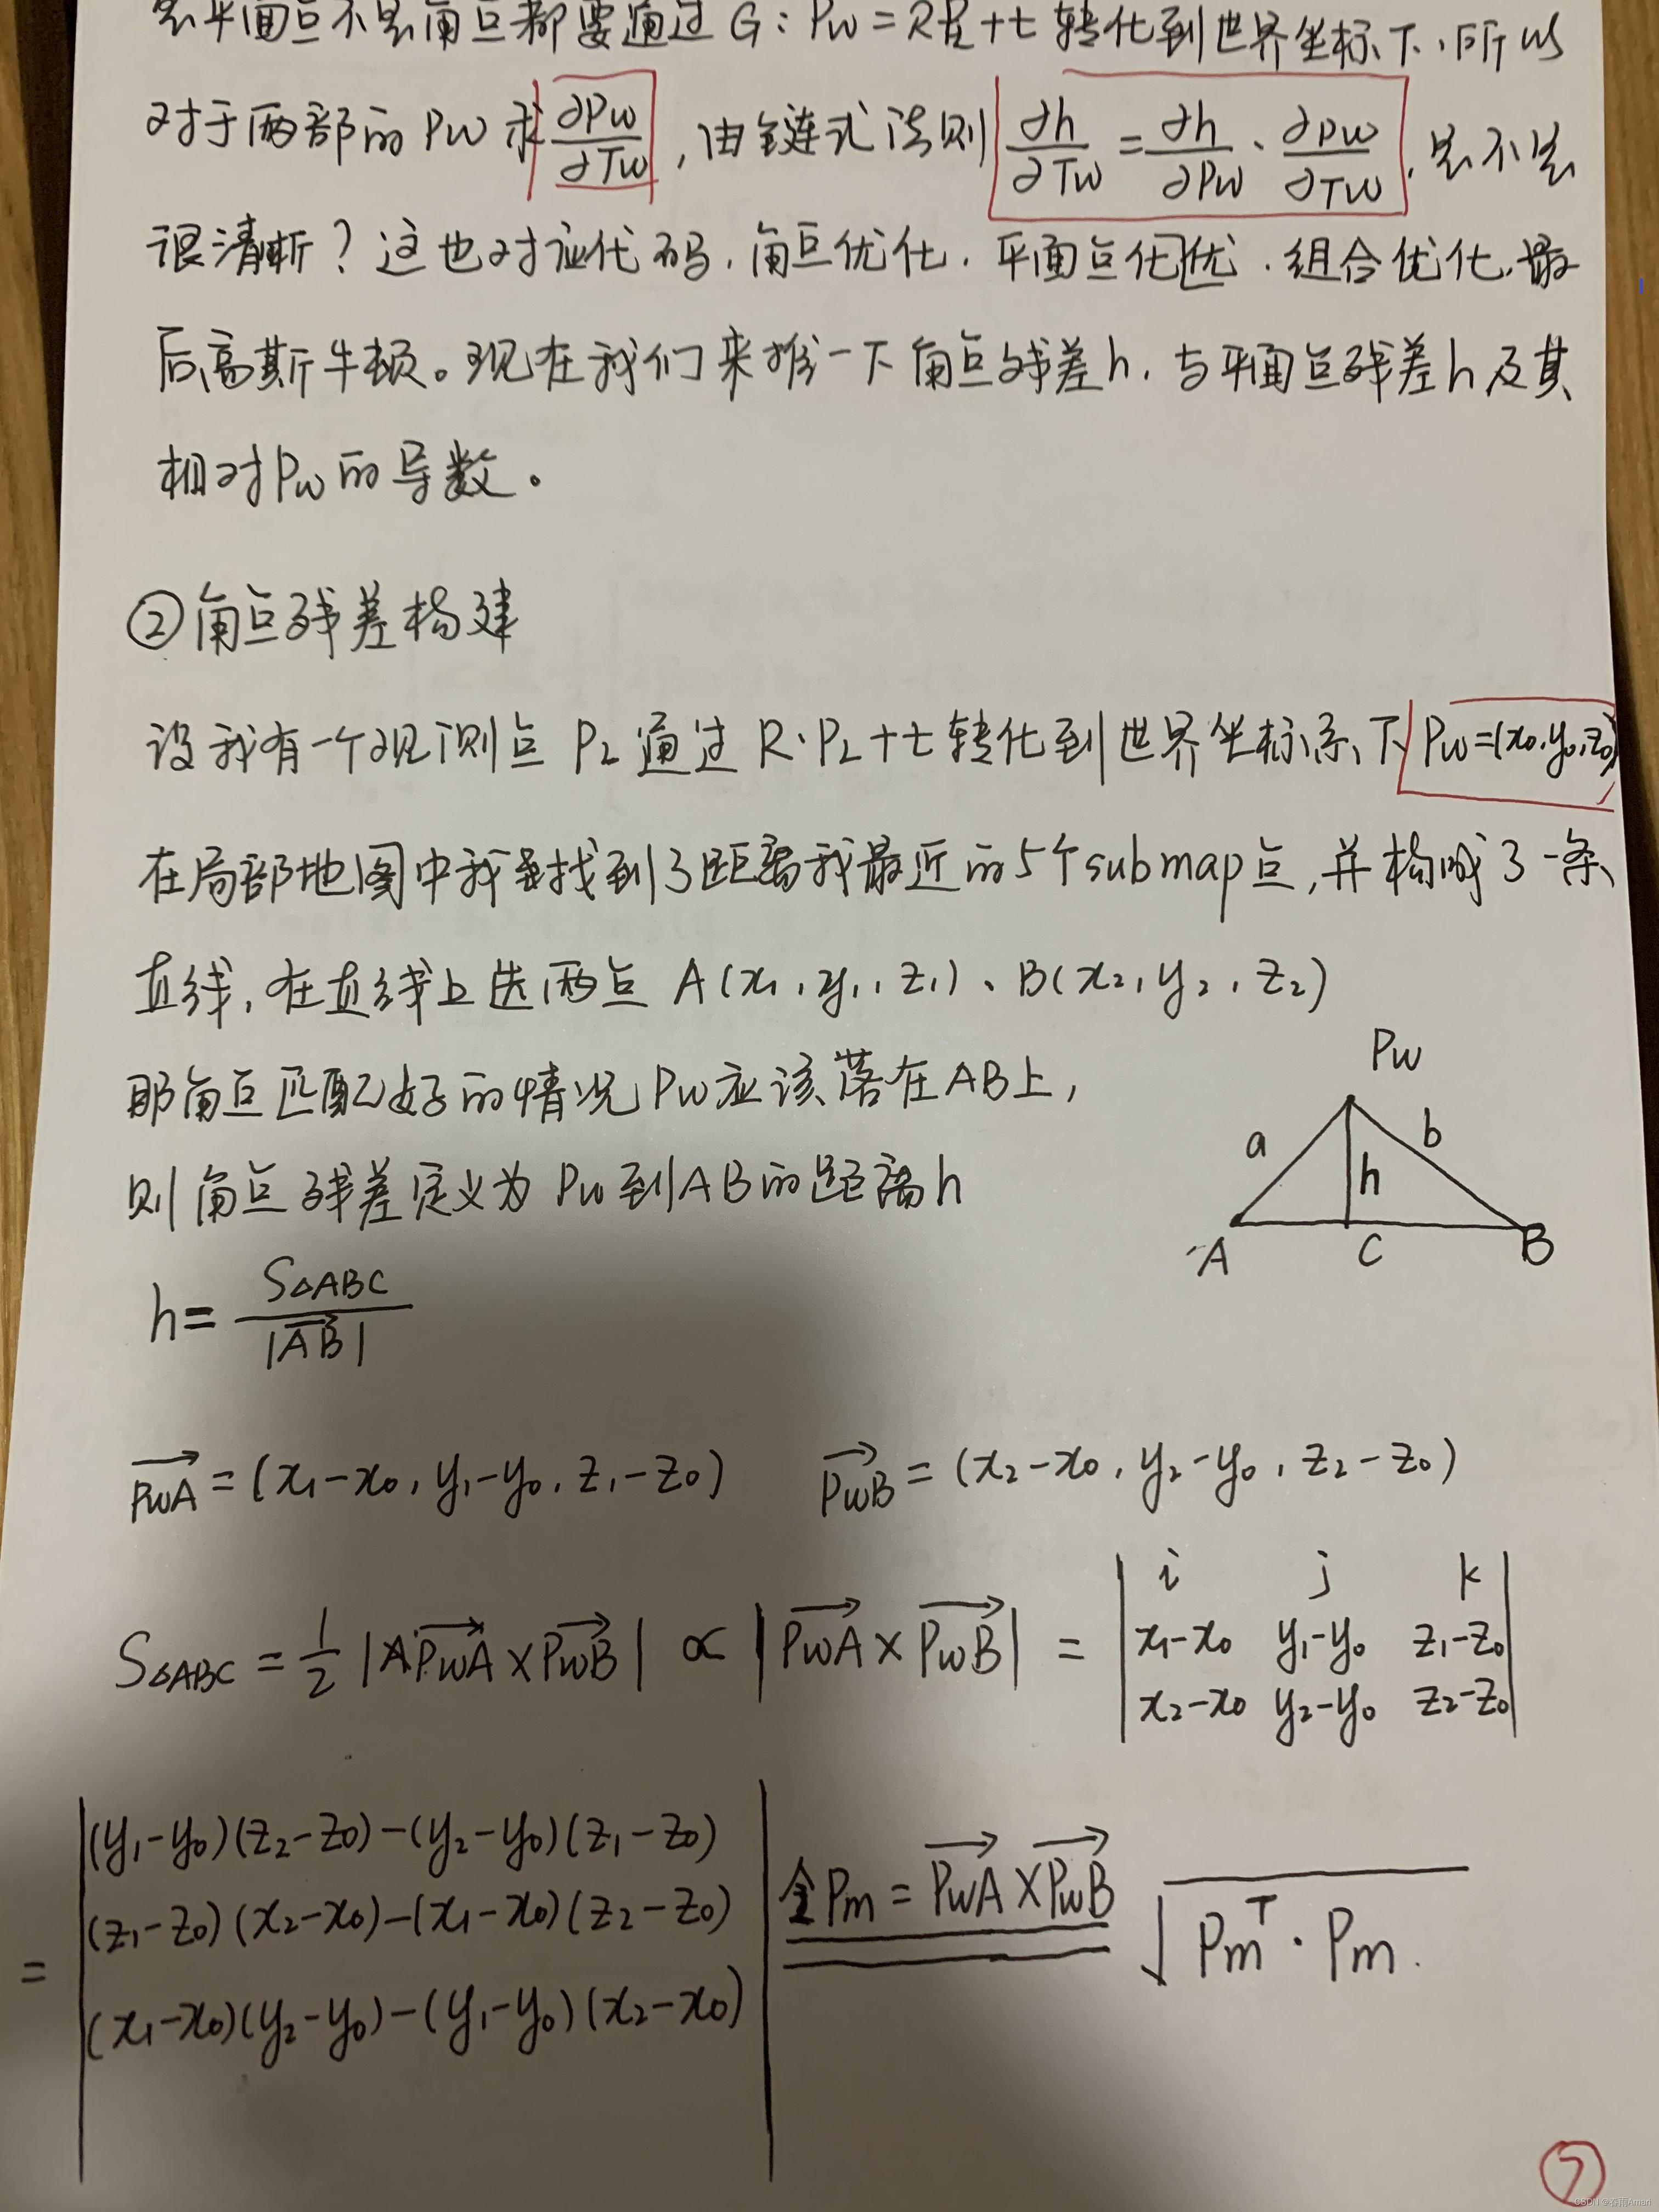 是平面点不是角点都要通过 G: Pw = RPL + t 转化到世界坐标下,所以
对于两部的 Pw 求 ∂Pw/∂Tw ,由链式法则 ∂h/∂Tw = ∂h/∂Pw · ∂Pw/∂Tw . 是不是
很清晰?这也对应代码,角点优化,平面点化优,组合优化,最
后高斯牛顿。现在我们来推一下角点残差h,与平面点残差h及其
相对Pw的导数。
②角点残差构建
设我有一个观测点 PL 通过 R·PL + t 转化到世界坐标系下 Pw=(x0,y0,z0)
在局部地图中我寻找到了距离我最近的5个submap点,并构成了一条
直线,在直线上选两点 A(x1,y1,z1)、B(x2,y2,z2)
那角点匹配好的情况Pw应该落在AB上,
则角点残差定义为Pw到AB的距离h
Pw
a b
h
A C B
h = S△ABC / |AB|
PwA = (x1-x0, y1-y0, z1-z0) PwB = (x2-x0, y2-y0, z2-z0)
i j k
S△ABC = 1/2 |PwA × PwB| ∝ |PwA × PwB| = x1-x0 y1-y0 z1-z0
x2-x0 y2-y0 z2-z0
(y1-y0)(z2-z0)-(y2-y0)(z1-z0)
(z1-z0)(x2-x0)-(x1-x0)(z2-z0) 令Pm = PwA × PwB √(PmT · Pm)
= (x1-x0)(y2-y0)-(y1-y0)(x2-x0)
⑦
CSDN @春雨Amari